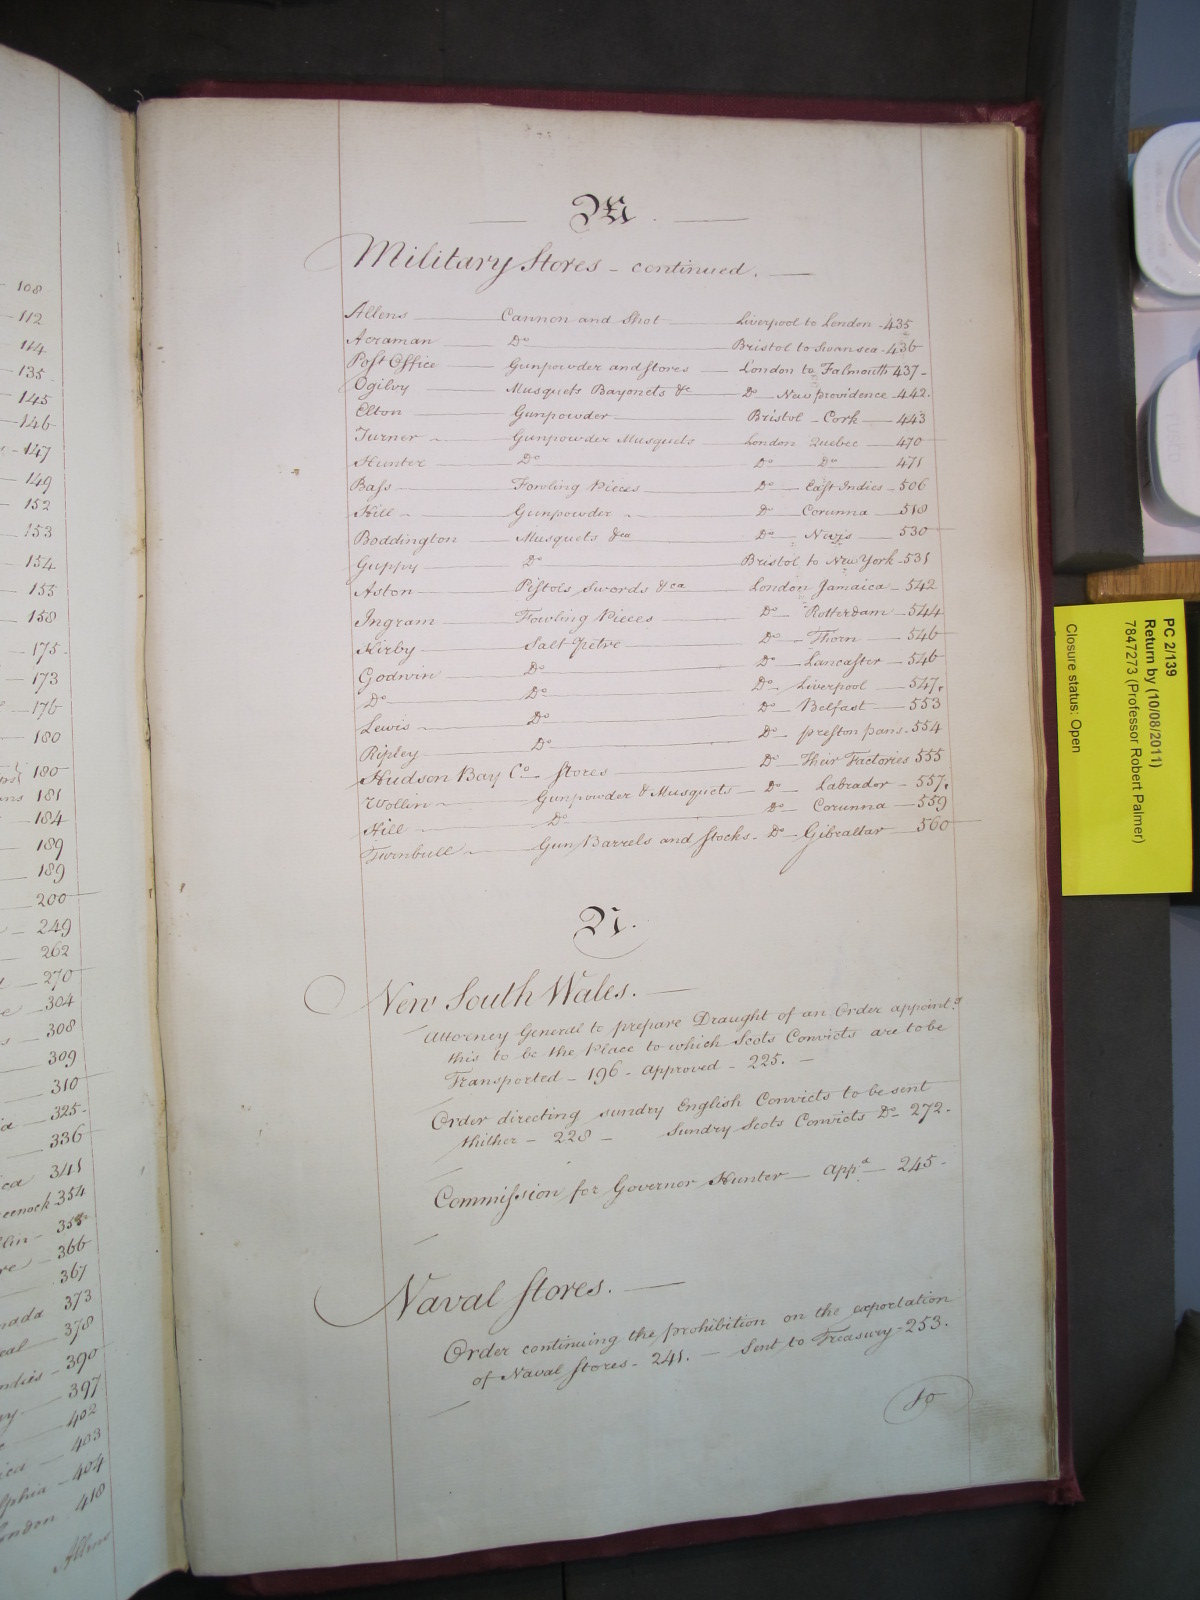 108
112
114
135
145
146
147
149
152
153
154
153
158
175
173
176
180
180
181
184
189
189
200
249
262
270
304
308
309
310
325
336
341
354
355
366
367
373
378
390
397
402
403
404
London 418
Allens
M
Military Stores - continued.
Allens Cannon and Shot Liverpool to London - 435
Acraman Do Bristol to Swansea - 436
Post Office Gunpowder and Stores London to Falmouth 437 -
Ogilvy Musquets Bayonets &c Do New providence - 442.
Elton Gunpowder Bristol - Cork 443
Turner Gunpowder Musquets London Quebec 470
Hunter Do Do Do 471
Bass Fowling Pieces Do East Indies - 506
Hill Gunpowder Do Corunna 518
Boddington Musquets &ca Do Nevis 530
Guppy Do Bristol to New York - 531
Aston Pistols Swords &ca London Jamaica - 542
Ingram Fowling Pieces Do Rotterdam - 544
Kirby Salt Petre Do Thorn 546
Godwin Do Do Lancaster - 546
Do Do Do Liverpool 547.
Lewis Do Do Belfast 553
Ripley Do Do preston pans. 554
Hudson Bay Co Stores Do Their Factories 555
Wollin Gunpowder & Musquets Do Labrador - 557.
Hill Do Do Corunna 559
Turnbull Gun Barrels and Stocks. Do Gibraltar 560
N.
New South Wales.
Attorney General to prepare Draught of an Order appointg
this to be the Place to which Scots Convicts are to be
Transported - 196 - approved - 225. -
Order directing sundry English Convicts to be sent
thither - 228 - Sundry Scots Convicts Do 272.
Commission for Governor Hunter - appd 245 -
Naval Stores.
Order continuing the prohibition on the exportation
of Naval Stores - 241. - Sent to Treasury - 253.
PC 2/139
Return by (10/08/2011)
7847273 (Professor Robert Palmer)
Closure status: Open